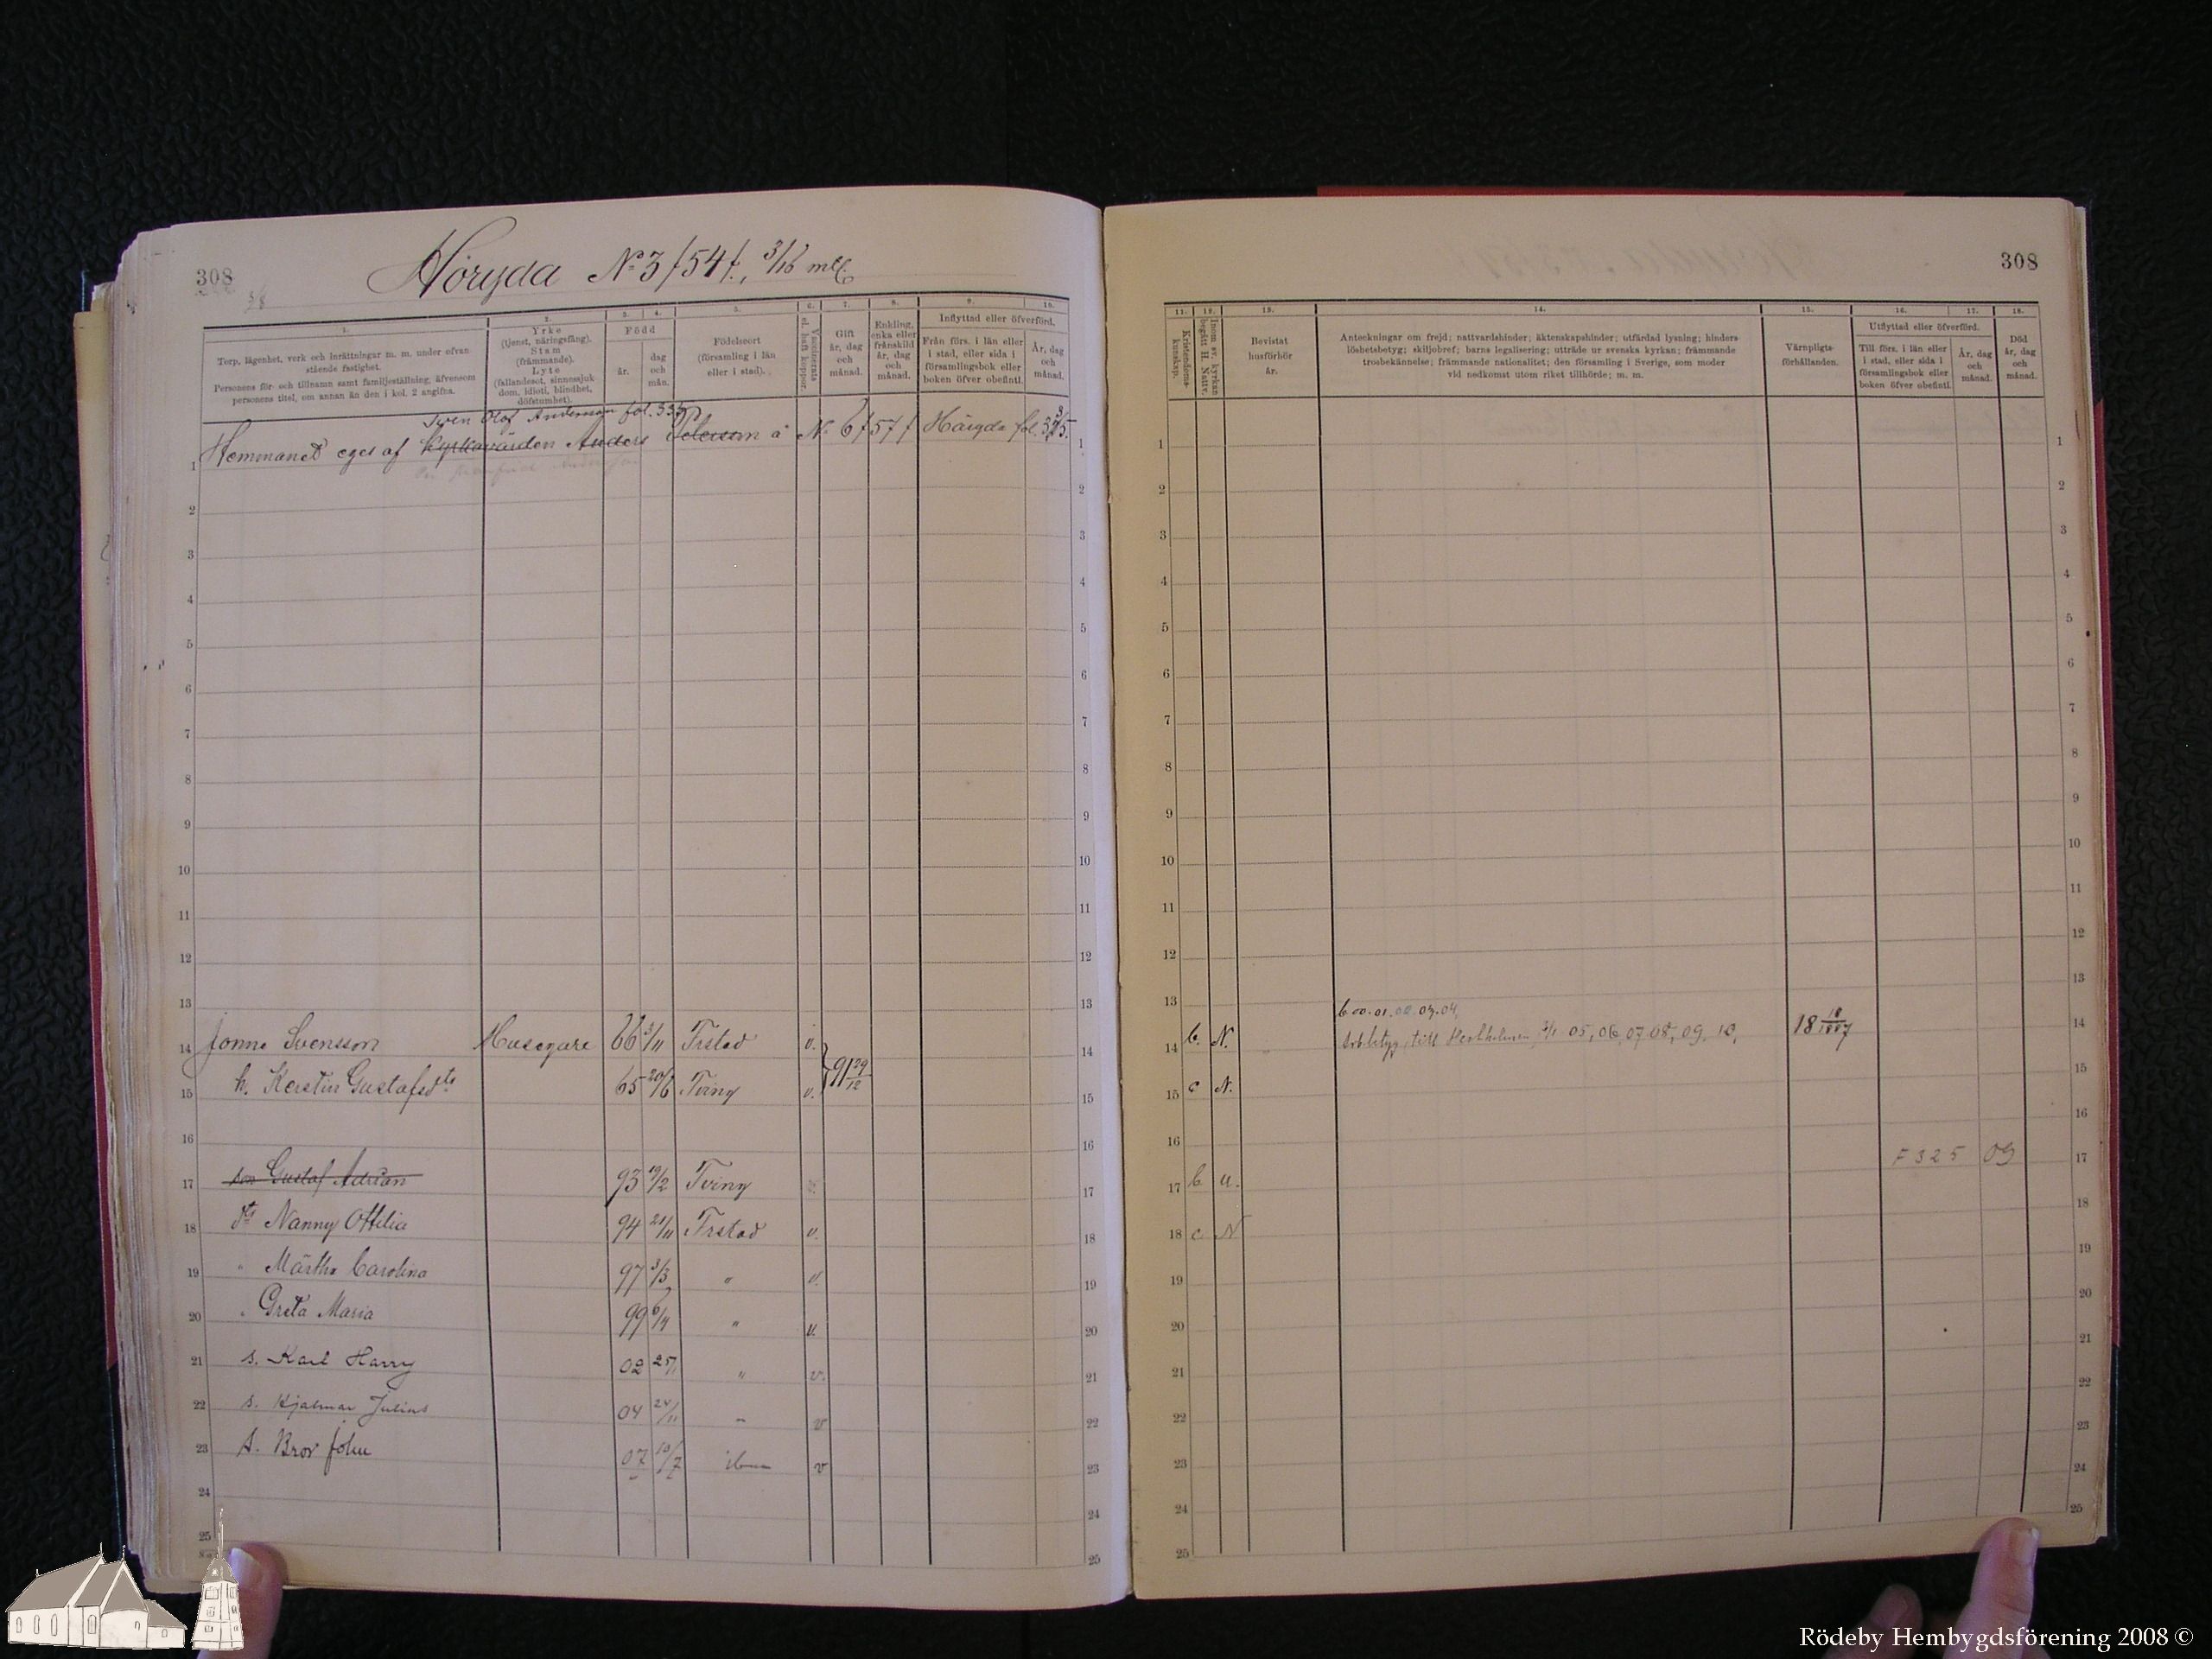 308
Höryda No 3 /54/., 3/16 mtl.
1.
Torp, lägenhet, verk och inrättningar m. m. under ofvan
stående fastighet.
Personens för- och tillnamn samt familjeställning, äfvensom
personens titel, om annan än den i kol. 2 angifna.
2.
Yrke
(tjenst, näringsfång).
Stam
(främmande).
Lyte
(fallandesot, sinnessjuk
dom, idioti, blindhet,
döfstumhet).
3. 4.
Född
år.
dag
och
mån.
5.
Födelseort
(församling i län
eller i stad).
6.
Vaccinerats
el. haft koppor.
7.
Gift
år, dag
och
månad.
8.
Enkling,
enka eller
frånskild
år, dag
och
månad.
9. 10.
Inflyttad eller öfverförd.
Från förs. i län eller
i stad, eller sida i
församlingsbok eller
boken öfver obefintl.
År, dag
och
månad.
Sven Olof Andersson fol. 335
1 Hemmanet eges af Kyrkovärden Anders Petersson å No 6 /57/ Häigda fol. 1
2 2
3 3
4 4
5 5
6 6
7 7
8 8
9 9
10 10
11 11
12 12
13 13
14 Jonne Svensson Husegare 66 3/11 Frstad v. 14
15 h. Kerstin Gustafsdtr 65 20/6 Tving v. 91 29/12 15
16 16
17 son Gustaf Adrian 93 19/2 Tving 17
18 dtr Nanny Ottilia 94 21/11 Frstad v. 18
19 " Märtha Carolina 97 3/3 " v. 19
20 " Greta Maria 99 6/4 " v. 20
21 s. Karl Harry 02 25/1 " v. 21
22 s. Hjalmar Julius 04 24/11 " v 22
23 s. Bror John 07 10/7 ibm v 23
24 24
25 25
308
11.
Kristendoms-
kunskap.
12.
Inom sv. kyrkan
begått H. Nattv.
13.
Bevistat
husförhör
år.
14.
Anteckningar om frejd; nattvardshinder; äktenskapshinder; utfärdad lysning; hinders
löshetsbetyg; skiljobref; barns legalisering; utträde ur svenska kyrkan; främmande
trosbekännelse; främmande nationalitet; den församling i Sverige, som moder
vid nedkomst utom riket tillhörde; m. m.
15.
Värnpligts-
förhållanden.
16. 17.
Utflyttad eller öfverförd.
Till förs. i län eller
i stad, eller sida i
församlingsbok eller
boken öfver obefintl.
År, dag
och
månad.
18.
Död
år, dag
och
månad.
1 1
2 2
3 3
4 4
5 5
6 6
7 7
8 8
9 9
10 10
11 11
12 12
13 b 00. 01. 02. 03. 04. 13
14 b. N. till 05, 06, 07, 08, 09, 10, 18 18/1887 14
15 c N. 15
16 16
17 b u. F 325 09 17
18 c N 18
19 19
20 20
21 21
22 22
23 23
24 24
25 25
Rödeby Hembygdsförening 2008 ©